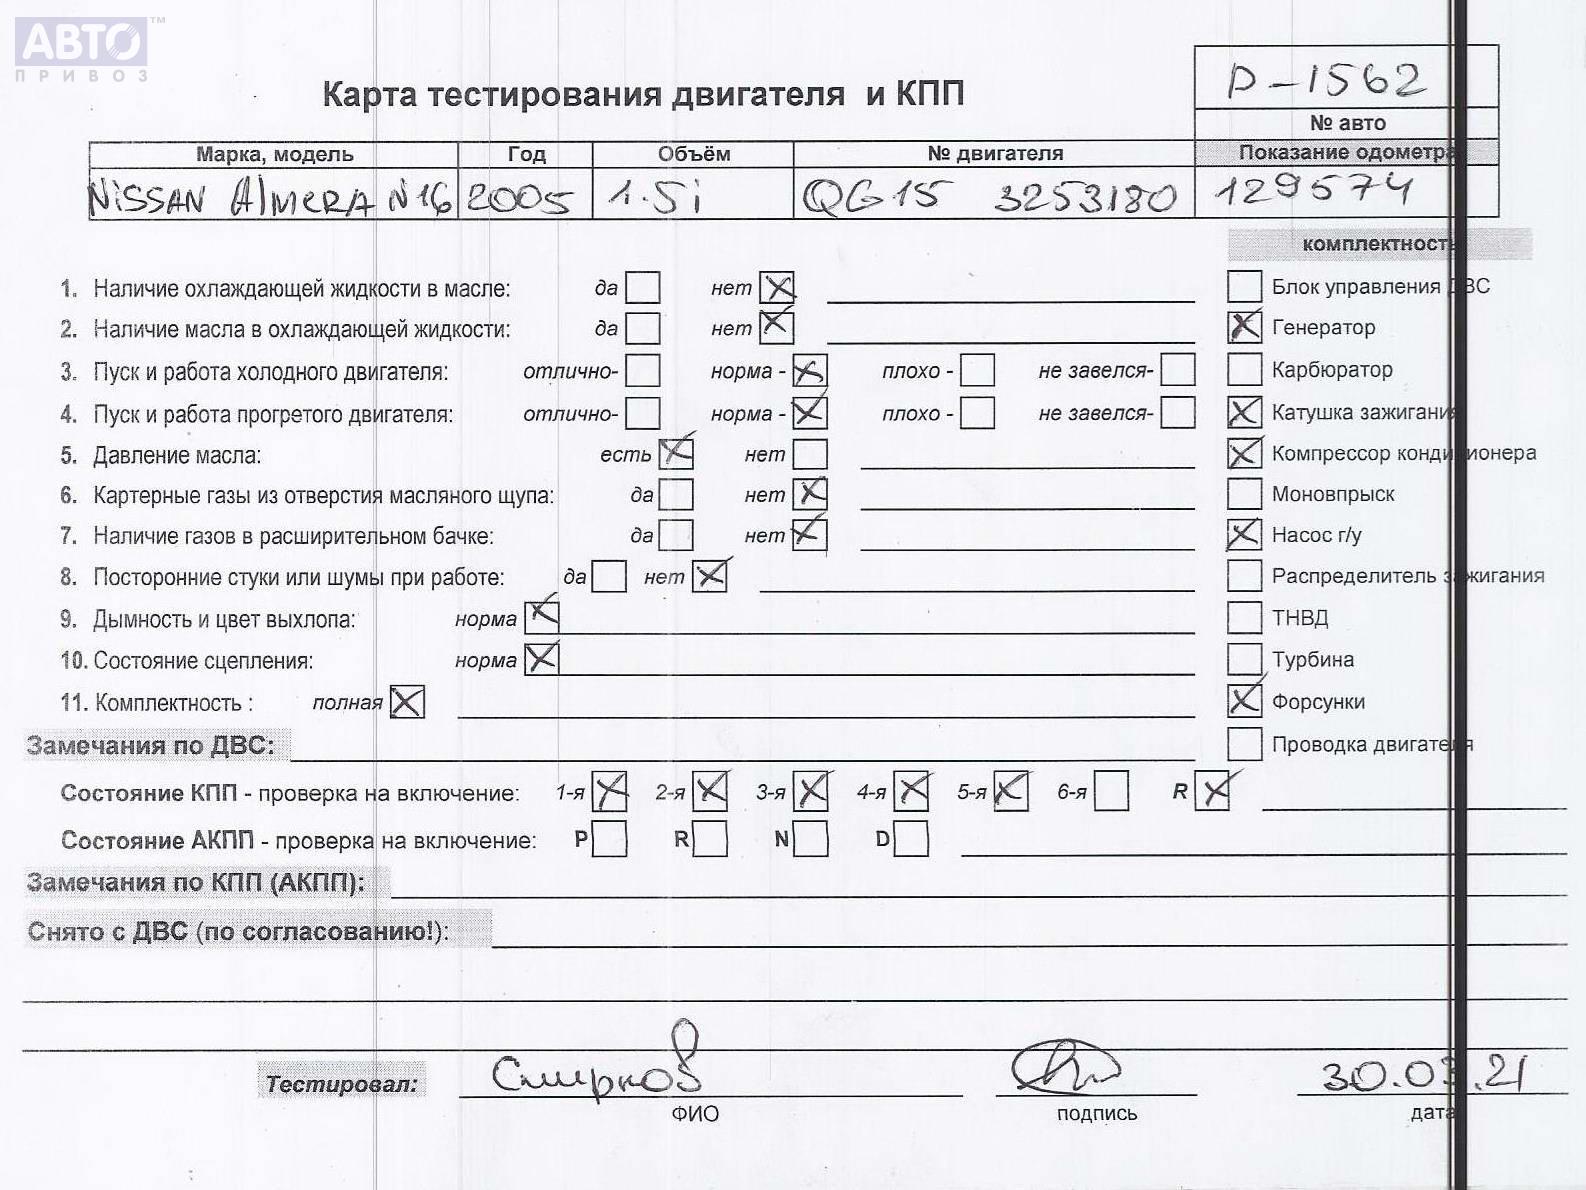 АВТО™
ПРИВОЗ
Карта тестирования двигателя и КПП
D-1562
№ авто
Марка, модель Год Объём № двигателя Показание одометра
NISSAN Almera N16 2005 1.5i QG15 3253180 129574
комплектность
1. Наличие охлаждающей жидкости в масле: да нет Блок управления ДВС
2. Наличие масла в охлаждающей жидкости: да нет Генератор
3. Пуск и работа холодного двигателя: отлично- норма - плохо - не завелся- Карбюратор
4. Пуск и работа прогретого двигателя: отлично- норма - плохо - не завелся- Катушка зажигания
5. Давление масла: есть нет Компрессор кондиционера
6. Картерные газы из отверстия масляного щупа: да нет Моновпрыск
7. Наличие газов в расширительном бачке: да нет Насос г/у
8. Посторонние стуки или шумы при работе: да нет Распределитель зажигания
9. Дымность и цвет выхлопа: норма ТНВД
10. Состояние сцепления: норма Турбина
11. Комплектность : полная Форсунки
Замечания по ДВС: Проводка двигателя
Состояние КПП - проверка на включение: 1-я 2-я 3-я 4-я 5-я 6-я R
Состояние АКПП - проверка на включение: P R N D
Замечания по КПП (АКПП):
Снято с ДВС (по согласованию!):
Тестировал: Смирнов 30.03.21
ФИО подпись дата